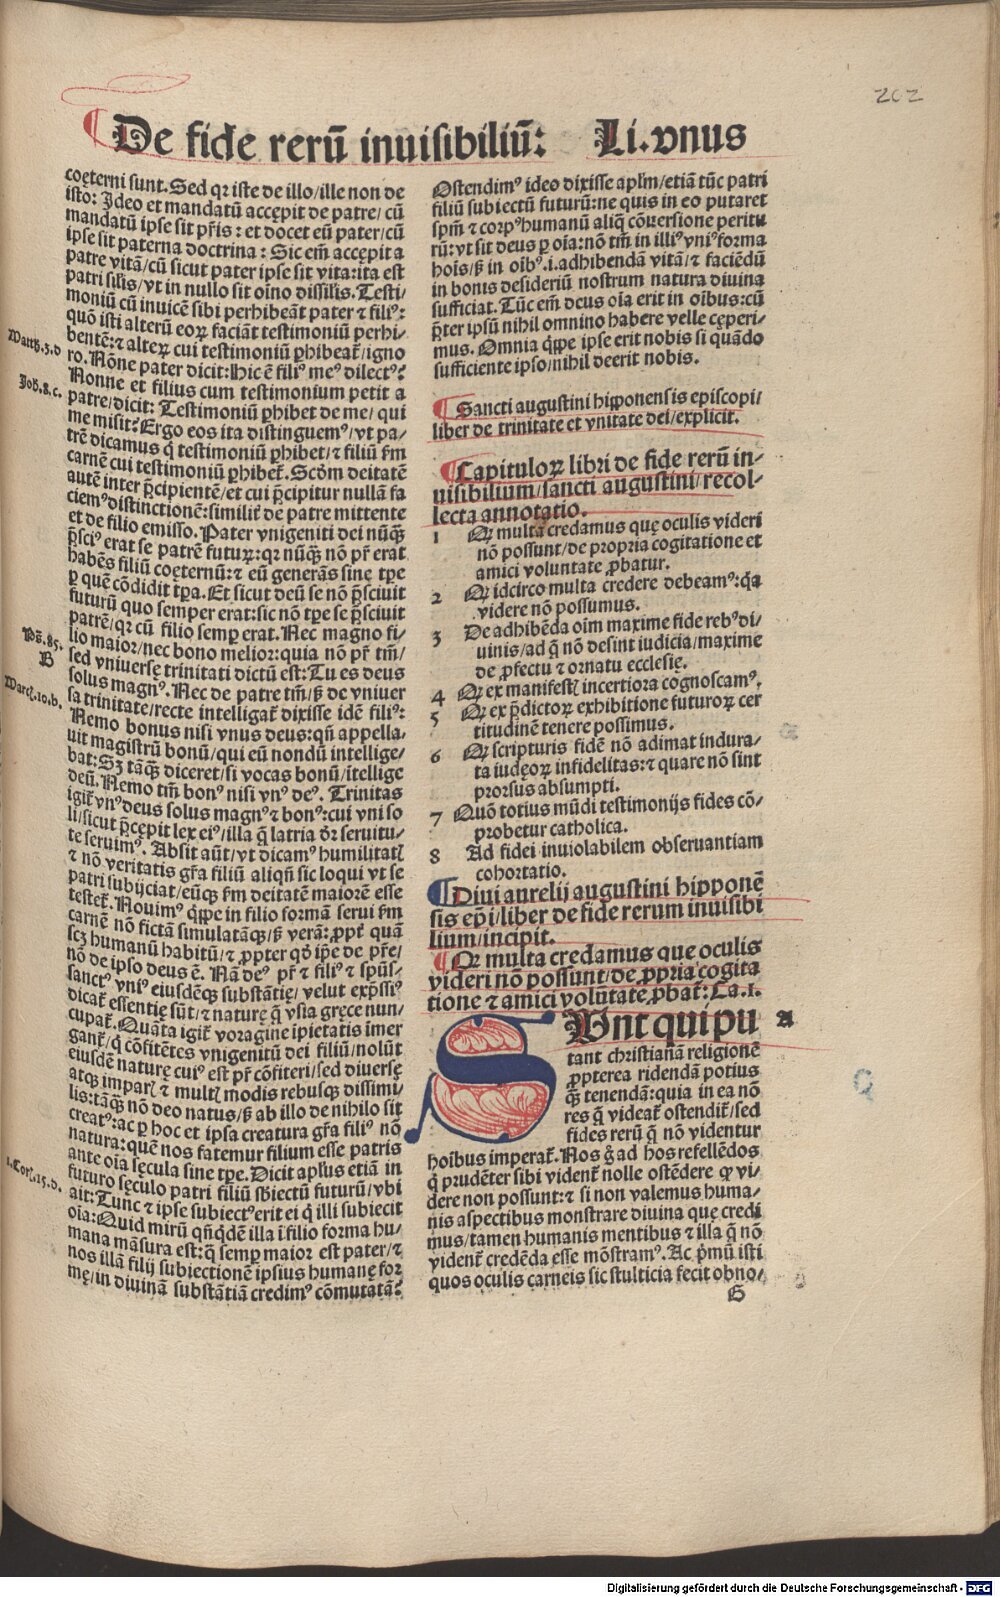 202
De fide rerū inuisibiliū: Li. vnus
coęterni sunt. Sed qꝛ iste de illo/ille non de
isto: Ideo et mandatū accępit de patre/ cū
mandatū ipse sit pr̄is: et docet eū pater/cū
ipse sit paterna doctrina: Sic em̄ accępit a
patre vitā/cū sicut pater ipse sit vita:ita est
patri silis/vt in nullo sit oīno dissilis. Testi/
moniū cū inuicē sibi perhibeāt pater ⁊ filiꝰ:
quō isti alterū eoꝝ faciāt testimoniū perhi/
bentē:⁊ alteꝝ cui testimoniū ꝑhibeat̄/igno
ro. Nōne pater dicit: Hic ē filiꝰ meꝰ dilectꝰ?
Nonne et filius cum testimonium petit a
patre/dicit: Testimoniū ꝑhibet de me/ qui
me misit? Ergo eos ita distinguemꝰ/vt pa/
trē dicamus q̄ testimoniū ꝑhibet/⁊ filiū ẜm
carnē cui testimoniū ꝑhibet̄. Scdm̄ deitatē
autē inter p̄cipientē/et cui p̄cipitur nullā fa
ciemꝰ distinctionē:similit̄ de patre mittente
et de filio emisso. Pater vnigeniti dei nūq̄ꝫ
p̄sciꝰ erat se patrē futuꝝ:qꝛ nūq̄ꝫ nō pr̄ erat
habēs filiū coęternū:⁊ eū generās sine tp̄e
ꝑ quē cōdidit tp̄a. Et sicut deū se nō p̄sciuit
futurū quo semper erat:sic nō tp̄e se p̄sciuit
patrē/qꝛ cū filio semꝑ erat. Nec magno fi/
lio maior/nec bono melior:quia nō pr̄ tm̄/
sed vniuersę trinitati dictū est: Tu es deus
solus magnꝰ. Nec de patre tm̄/ẜ de vniuer
sa trinitate/recte intelligat̄ dixisse idē filiꝰ:
Nemo bonus nisi vnus deus:qn̄ appella/
uit magistrū bonū/qui eū nondū intellige/
bat:Sꝫ tāq̄ꝫ diceret/si vocas bonū/ītellige
deū. Nemo tm̄ bonꝰ nisi vnꝰ deꝰ. Trinitas
igit̄ vnꝰ deus solus magnꝰ ⁊ bonꝰ:cui vni so
li/sicut p̄cępit lex eiꝰ/illa q̄ latria dr̄ seruitu/
te seruimꝰ. Absit aūt/vt dicamꝰ humilitatꝭ
⁊ nō veritatis gr̄a filiū aliqn̄ sic loqui vt se
patri subijciat/eūqꝫ ẜm deitatē maiorē esse
testet̄. Nouimꝰ q̄ꝑpe in filio formā serui ẜm
carnē nō fictā simulatāqꝫ/ẜ verā:ꝓpt̄ quā
scꝫ humanū habitū/⁊ ꝓpter qđ īpe de pr̄e/
nō de ipso deus ē. Nā deꝰ pr̄ ⁊ filiꝰ ⁊ spūs/
sanctꝰ vniꝰ eiusdēqꝫ substātię/ velut exp̄ssiꝰ
dicat̄ essentię sūt/⁊ naturę q̄ vsia gręce nun/
cupat̄. Quāta igit̄ voragine īpietatis īmer
gant̄/q̄ cōfitētes vnigenitū dei filiū/nolūt
eiusdē naturę cuiꝰ est pr̄ cōfiteri/sed diuersę
atqꝫ imparꝭ ⁊ multꝭ modis rebusqꝫ dissimi/
lis:tāq̄ꝫ nō deo natus/ẜ ab illo de nihilo sit
creatꝰ:ac ꝑ hoc et ipsa creatura gr̄a filiꝰ nō
natura:quē nos fatemur filium esse patris
ante oīa sęcula sine tp̄e. Dicit apl̄us etiā in
futuro sęculo patri filiū sb̄iectū futurū/vbi
ait: Tunc ⁊ ipse subiectꝰ erit ei q̄ illi subiecit
oīa: Quid mirū qn̄qđē illa ī filio forma hu/
mana māsura est:q̄ semꝑ maior est pater/⁊
nos illā filij subiectionē ipsius humanę for
mę/in diuinā substātiā credimꝰ cōmutatā?
Matth.3.d
Joh.8.c.
Ps̄.85.
B
Marcꝭ.10.b.
1.Corꝭ.15.d.
Ostendimꝰ ideo dixisse apl̄m/etiā tūc patri
filiū subiectū futurū:ne quis in eo putaret
spm̄ ⁊ corpꝰ humanū aliq̄ cōuersione peritu
rū:vt sit deus ꝑ oīa:nō tm̄ in illiꝰ vniꝰ forma
hoīs/ẜ in oībꝰ.i.adhibendā vitā/⁊ faciēdū
in bonis desideriū nostrum natura diuina
sufficiat. Tūc em̄ deus oīa erit in oībus:cū
p̄ter ipsū nihil omnino habere velle cęperi/
mus. Omnia q̄ꝑpe ipse erit nobis si quādo
sufficiente ipso/nihil deerit nobis.
Sancti augustini hipponensis episcopi/
liber de trinitate et vnitate dei/explicit.
Capituloꝝ libri de fide rerū in/
uisibilium/sancti augustini/recol/
lecta annotatio.
1 Qꝛ multa credamus quę oculis videri
nō possunt/de propria cogitatione et
amici voluntate ꝓbatur.
2 Qꝛ idcirco multa credere debeamꝰ:q̄a
videre nō possumus.
3 De adhibēda oīm maxime fide rebꝰ di/
uinis/ad q̄ nō desint iudicia/maxime
de ꝓfectu ⁊ ornatu ecclesię.
4 Qꝛ ex manifestꝭ incertiora cognoscamꝰ.
5 Qꝛ ex p̄dictoꝝ exhibitione futuroꝝ cer
titudinē tenere possimus.
6 Qꝛ scripturis fidē nō adimat indura/
ta iudęoꝝ infidelitas:⁊ quare nō sint
prorsus absumpti.
7 Quō totius mūdi testimonijs fides cō/
probetur catholica.
8 Ad fidei inuiolabilem obseruantiam
cohortatio.
Diui aurelij augustini hipponē
sis ep̄i/liber de fide rerum inuisibi
lium/incipit.
Qꝛ multa credamus que oculis
videri nō possunt/de ꝓpria cogita
tione ⁊ amici volūtate ꝓbat̄: Ca.1.
SVnt qui pu
tant christianā religionē
ꝓpterea ridendā potius
q̄ꝫ tenendā:quia in ea nō
res q̄ videat̄ ostendit̄/sed
fides rerū q̄ nō videntur
hoībus imperat̄. Nos g̊ ad hos refellēdos
q̄ prudēter sibi vident̄ nolle ostēdere qꝫ vi/
dere non possunt:⁊ si non valemus huma/
nis aspectibus monstrare diuina quę credi
mus/tamen humanis mentibus ⁊ illa q̄ nō
vident̄ credēda esse mōstramꝰ. Ac p̄mū isti
quos oculis carneis sic stulticia fecit obno/
G
a
Digitalisierung gefördert durch die Deutsche Forschungsgemeinschaft - DFG